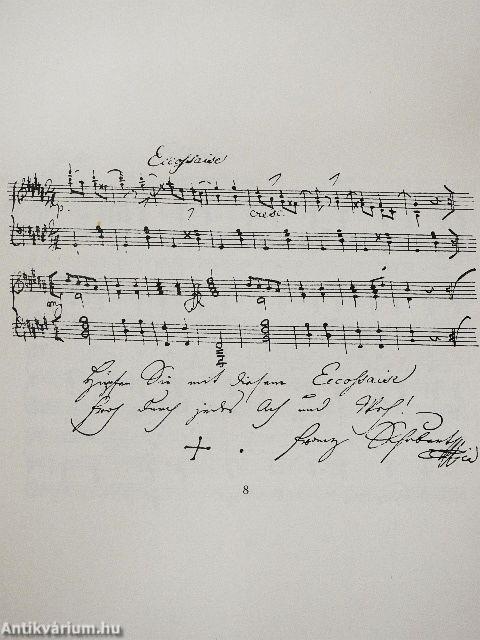 Eccossaise
p.
cresc.
Hüpfen Sie mit diesem Eccossaise
froh durch jedes Ach und Weh!
Franz Schubert
8
Antikvárium.hu